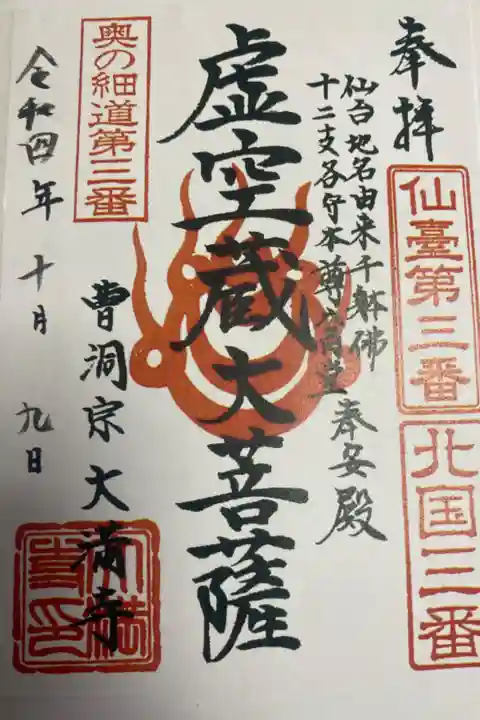 奉拝
仙臺第三番
北国三番
仙台地名由来千躰佛
十二支各守本尊 奉安殿
虚空蔵大菩薩
奥の細道第三番
曹洞宗大満寺
令和四年十月九日